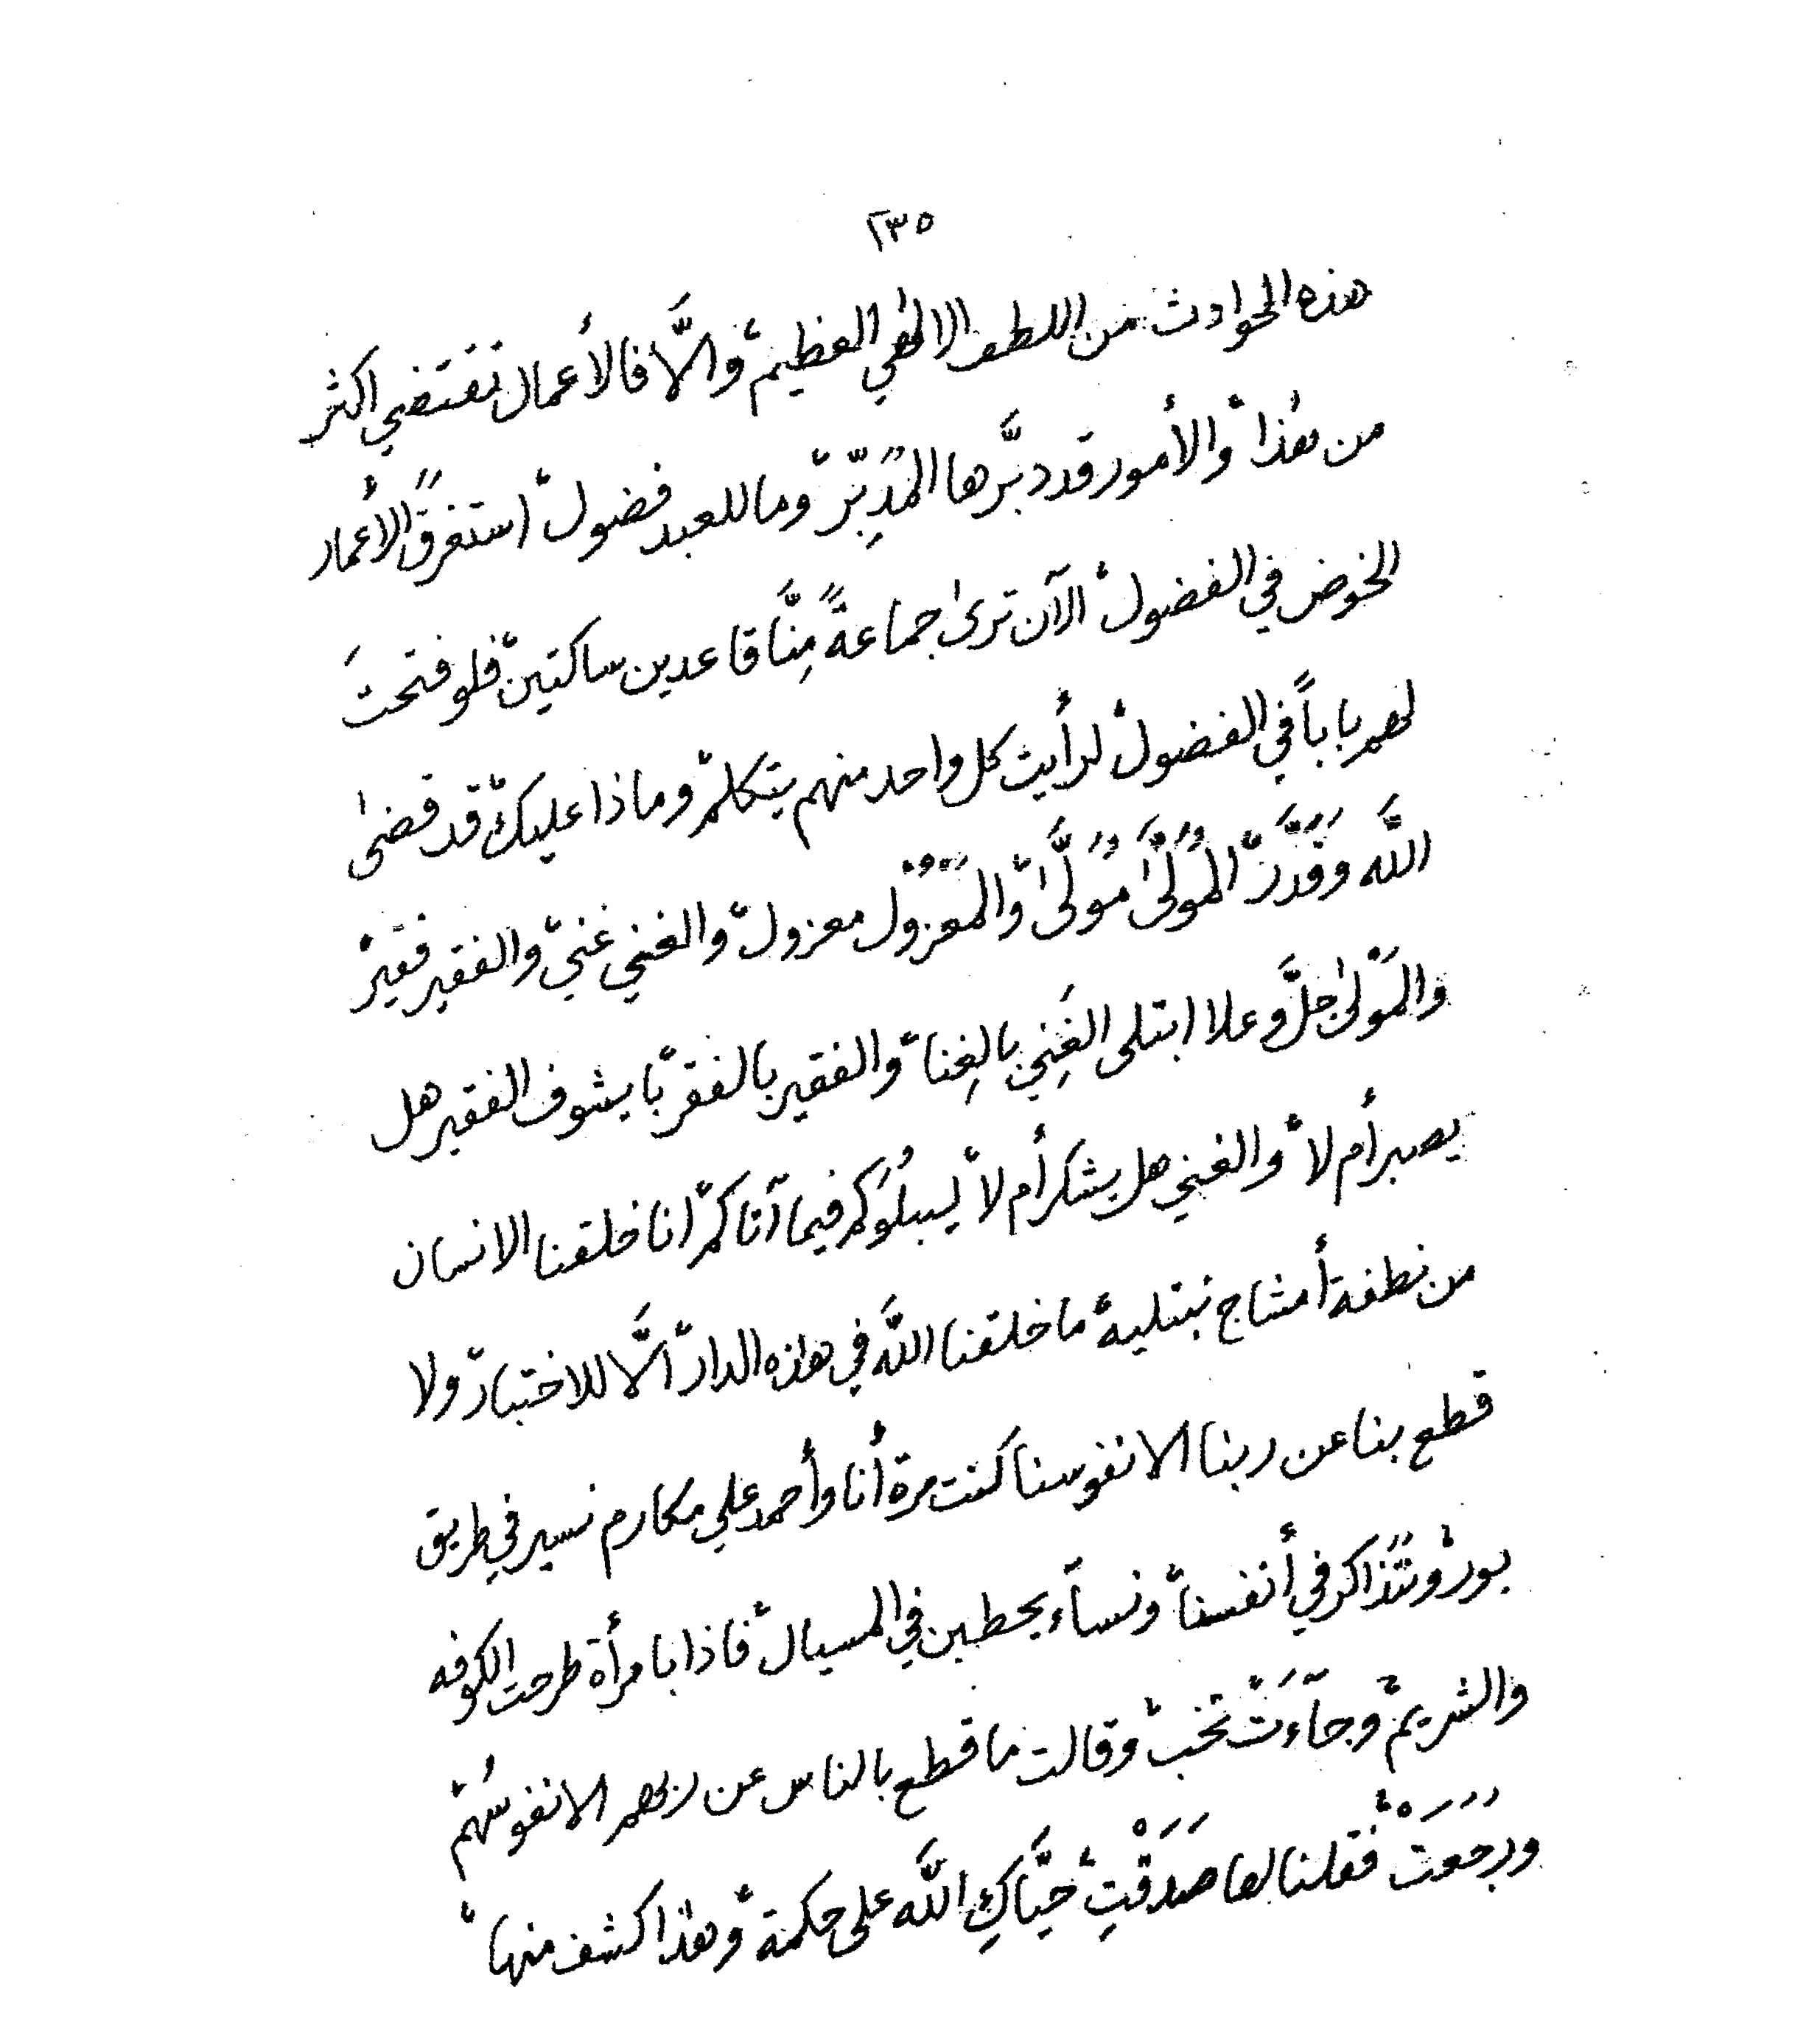 ٢٣٥
هذه الحوادث من اللطف الالٰهي العظيم وَالَّا فالأعمال تقتضي اكثر
من هٰذا والأمور قد دبَّرها المُدَبِّر وما للعبد فضول استغرق الأعمار
الخوض في الفضول الآن ترىٰ جماعةً مِنَّا قاعدين ساكتين فلو فتحتَ
لهم باباً في الفضول لرأيت كل واحد منهم يتكلم وماذا عليك قد قضىٰ
اللَّه وَقَدَّرَ المُوَلَّىٰ مُوَلَّىٰ وَالمَعْزُول معزول والغني غني والفقير فقير
والمَوْلىٰ جلَّ وعلا ابتلى الغَنِي بالغِنا والفقير بالفقر با يشوف الفقير هل
يصبر أم لا والغني هل يشكر أم لا ليبلُوَكم فيما آتاكم انا خلقنا الانسان
من نطفة أمشاج نبتليه ما خلقنا اللَّه في هٰذه الدار الَّا للاختبار ولا
قطع بنا عن ربنا الا نفوسنا كنت مرة أنا وأحمد علي مكارم نسير في طريق
بور ونتذاكر في أنفسنا ونسآء يحطبن في المسيال فاذا بامرأة طرحت الكوفه
والشريم وجآءَتْ تخب وقالت ما قطع بالناس عن ربهم الا نفوسُهم
ورَجَعَتْ فقلنا لها صَدَقْتِ حيَّاكِ اللَّه على حكمة وهٰذا كشف منها